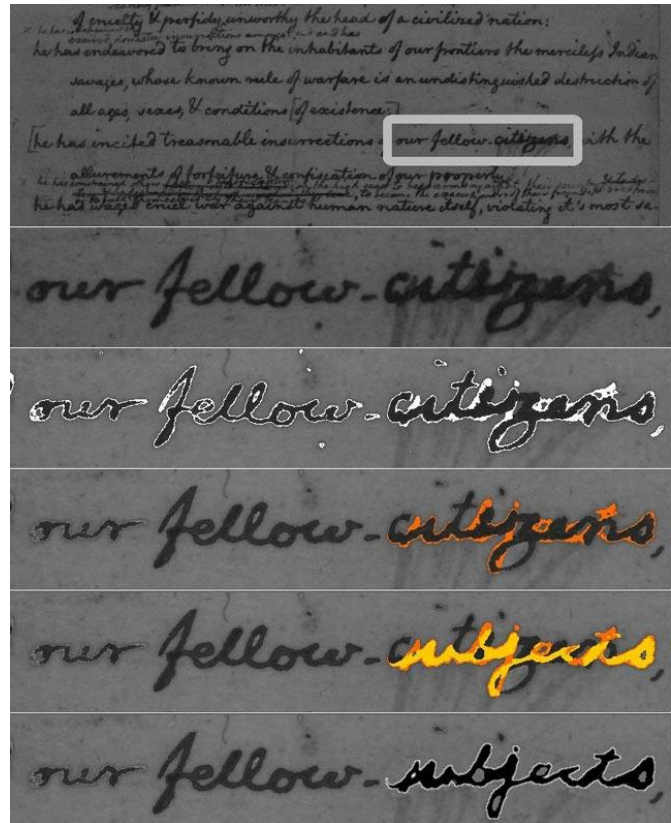 of cruelty & perfidy unworthy the head of a civilized nation:
he has endeavored to bring on the inhabitants of our frontiers the merciless Indian
savages, whose known rule of warfare is an undistinguished destruction of
all ages, sexes, & conditions [of existence:]
[he has incited treasonable insurrections our fellow-citizens, with the
allurements of forfeiture & confiscation of our property.
he has waged cruel war against human nature itself, violating it's most sa-
our fellow-citizens,
our fellow-citizens,
our fellow-citizens,
our fellow-subjects,
our fellow-subjects,